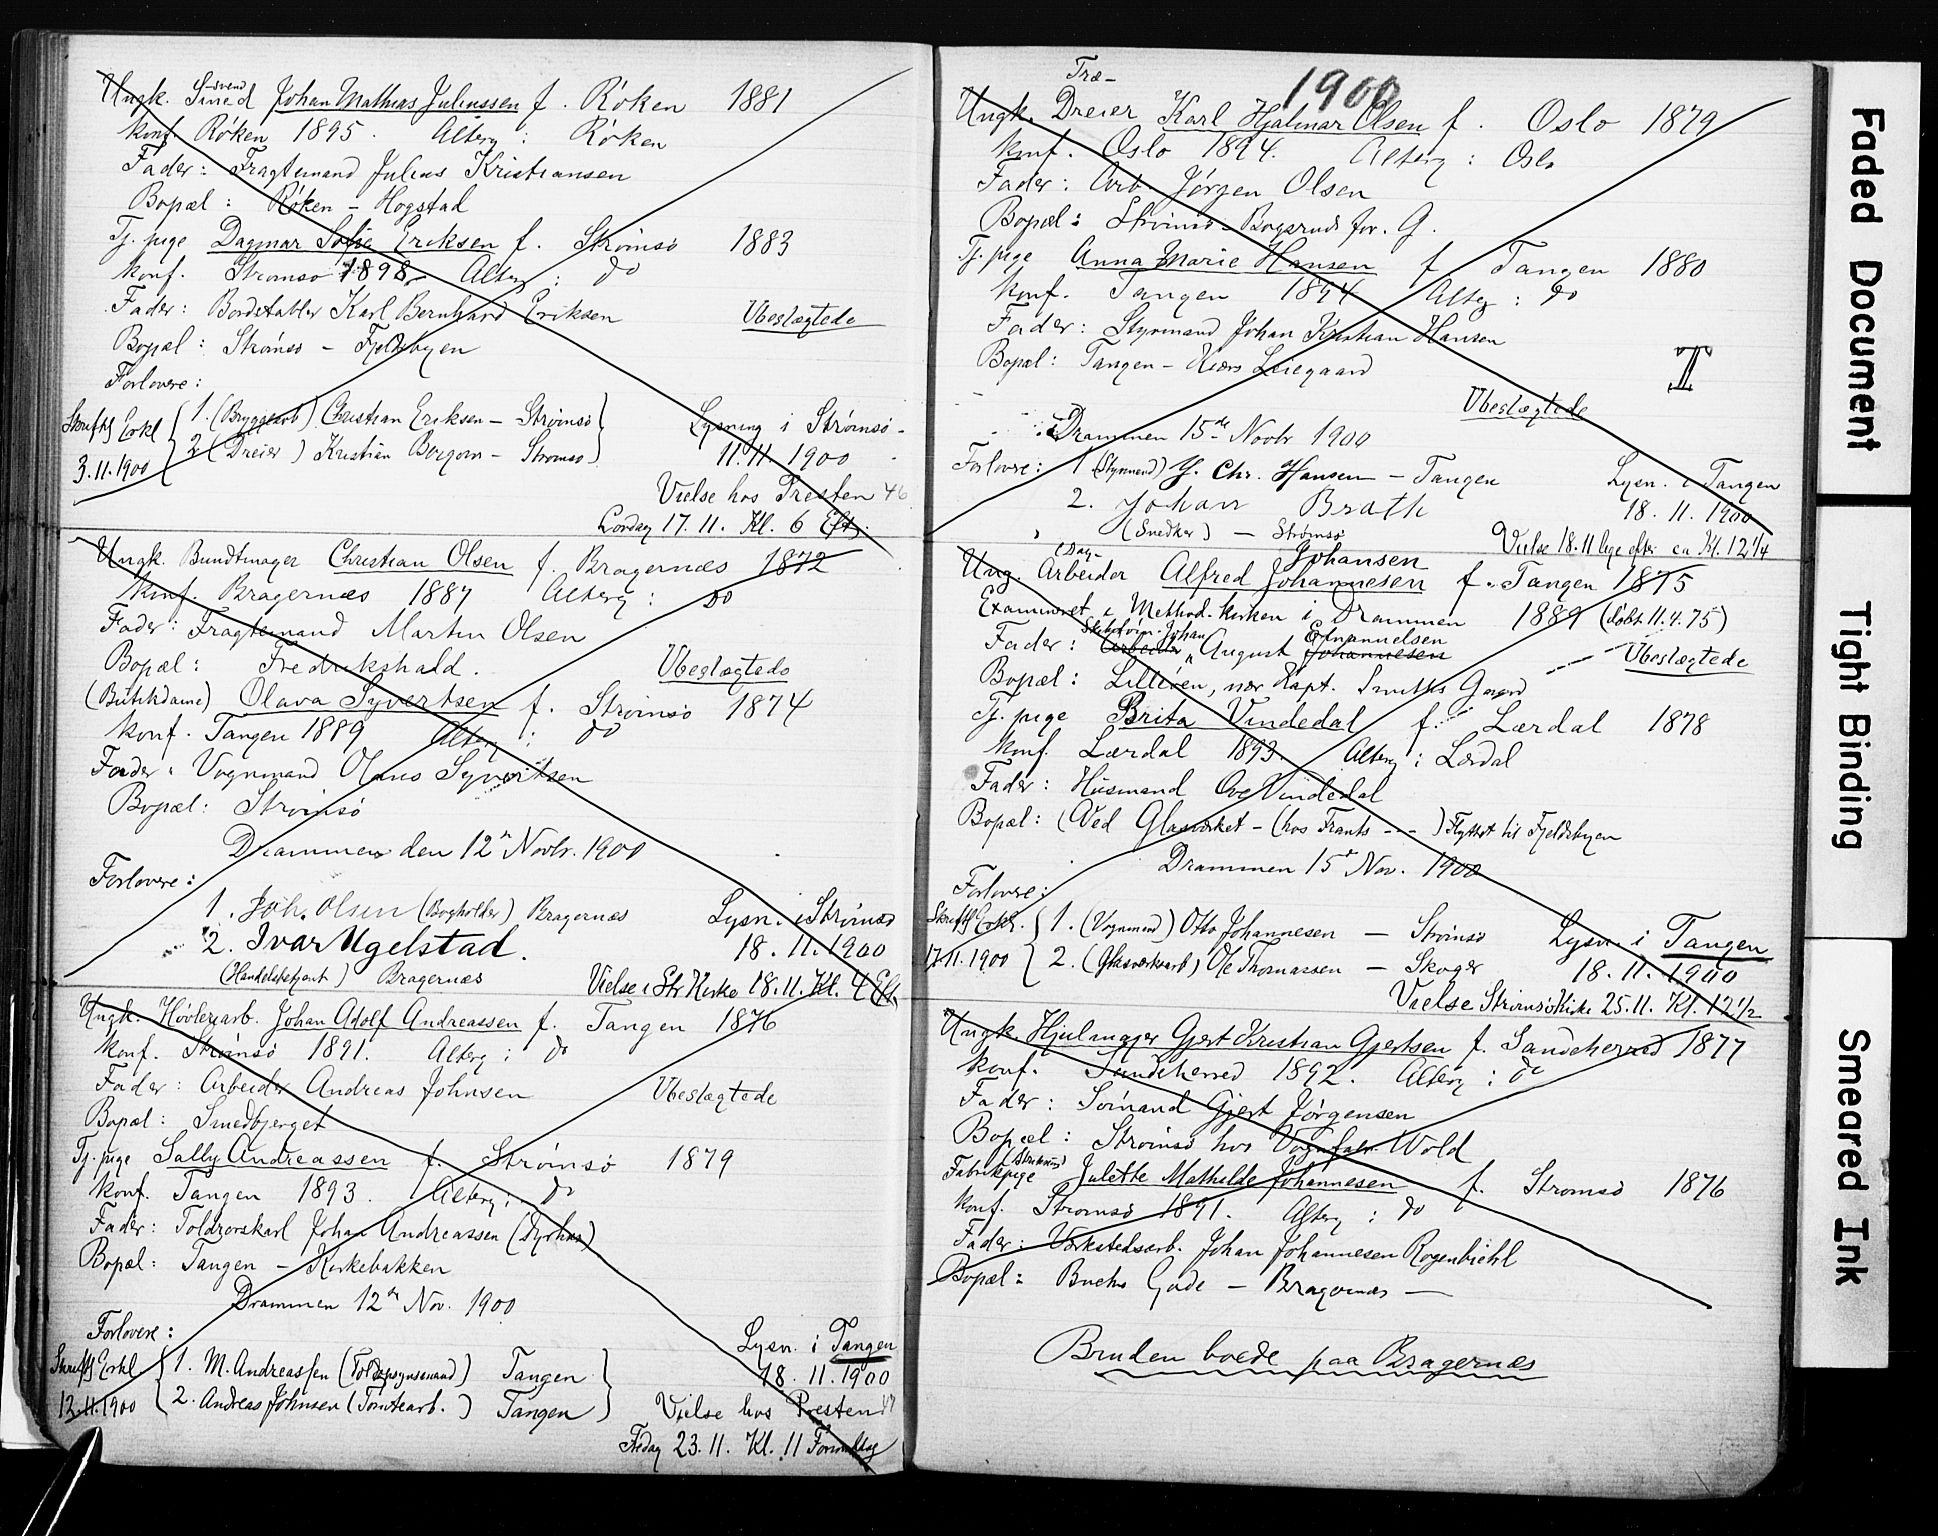 Ungk. Smedsvend Johan Mathias Juliussen f. Røken 1881
konf. Røken 1895. Alterg: Røken
Fader: Fragtemand Julius Kristiansen
Bopæl: Røken – Hogstad
Tj. pige Dagmar Sofie Eriksen f. Strømsø 1883
konf. Strømsø 1898. Alterg: do
Fader: Bordstabler Karl Bernhard Eriksen Ubeslægtede
Bopæl: Strømsø – Fjeldbyen
Forlovere:
Skriftl Erkl 3.11.1900
1. (Bryggearb) Christian Eriksen – Strømsø
2 (Dreier) Kristian Borgom – Strømsø
Lysning i Strømsø
11.11.1900
Vielse hos Presten 46
Lørdag 17.11. Kl. 6 Eft.
Ungk. Bundtmager Christian Olsen f. Bragernæs 1872
Konf. Bragernæs 1887 Alterg: do
Fader: Fragtemand Martin Olsen
Bopæl: Fredrikshald. Ubeslægtede
(Butikdame) Olava Syvertsen f. Strømsø 1874
konf. Tangen 1889 Alterg: do
Fader: Vognmand Olaus Syvertsen
Bopæl: Strømsø
Drammen den 12te Novbr. 1900
Forlovere:
1. Joh. Olsen (Bogholder) Bragernæs Lysn. i Strømsø
2. Ivar Ugelstad. 18.11.1900
(Handelsbetjent) Bragernæs Vielse i Str Kirke 18.11. Kl. 4 Eft.
Ungk. Høvleriarb. Johan Adolf Andreassen f. Tangen 1876
konf. Strømsø 1891. Alterg: do
Fader: Arbeider Andreas Johnsen Ubeslægtede
Bopæl: Smedbjerget
Tj. pige Sally Andreassen f. Strømsø 1879
konf. Tangen 1893. Alterg: do
Fader: Toldrorskarl Johan Andreassen
Bopæl: Tangen – Kirkebakken
Drammen 12te Nov. 1900
Forlovere: Lysn. i Tangen
18.11.1900
Skriftl Erkl 12.11.1900
1. M. Andreassen (Toldopsynsmand) Tangen
2. Andreas Johnsen (Tomtearb.) Tangen
Vielse hos Presten 47
Fredag 23.11. Kl. 11 Formiddag
1900
Ungk. Træ-Dreier Karl Hjalmar Olsen f. Oslo 1879
konf. Oslo 1894. Alterg: Oslo
Fader: Arb. Jørgen Olsen
Bopæl: Strømsø – Bogsruds for. G.
Tj. pige Anna Marie Hansen f Tangen 1880
konf. Tangen 1894 Alterg: do
Fader: Styrmand Johan Kristian Hansen
Bopæl: Tangen – Kiørs Leiegaard
I
Ubeslægtede
Drammen 15de Novbr 1900
Forlovere: 1 (Styrmand) J. Chr. Hansen – Tangen Lysn. i Tangen
2. Johan Brath 18.11.1900
(Snedker) – Strømsø Vielse 18.11 lige efter ca Kl. 12 1/4
Ung. (Dag-) Arbeider Alfred Johannesen Johansen f. Tangen 1875
Examineret i Method. kirken i Drammen 1889 (døbt 11.4.75)
Fader: Arbeider Skibstøm. Johan August Johannesen Emanuelsen
Ubeslægtede
Bopæl: Lilleøen, nær Kapt. Smiths Gaard
Tj. pige Brita Vindedal f. Lærdal 1878
konf. Lærdal 1893. Alterg: Lærdal
Fader: Husmand Ove Vindedal
Bopæl: (Ved Glasværket – (hos Frants ---) Flyttet til Fjeldbyen
Drammen 15de Nov. 1900
Forlovere:
Skriftl Erkl. 17.11.1900
1. (Vognmand) Otto Johannesen – Strømsø Lysn. i Tangen
2. (Glasværksarb) Ole Thomassen – Skoger 18.11.1900
Vielse Strømsø Kirke 25.11. Kl. 12 1/2
Ungk. Hjulmager Gjert Kristian Gjertsen f. Sandeherred 1877
konf. Sandeherred 1892. Alterg: do
Fader: Sømand Gjert Jørgensen
Bopæl: Strømsø hos Vognfabr. Wold
Fabrikpige Julette Mathilde Johannesen f. Strømsø 1876
konf. Strømsø 1891. Alterg: do
Fader: Værkstedsarb. Johan Johannesen Rogenbiehl
Bopæl: Buchs Gade – Bragernæs –
Bruden boede paa Bragernæs
Faded Document
Tight Binding
Smeared Ink